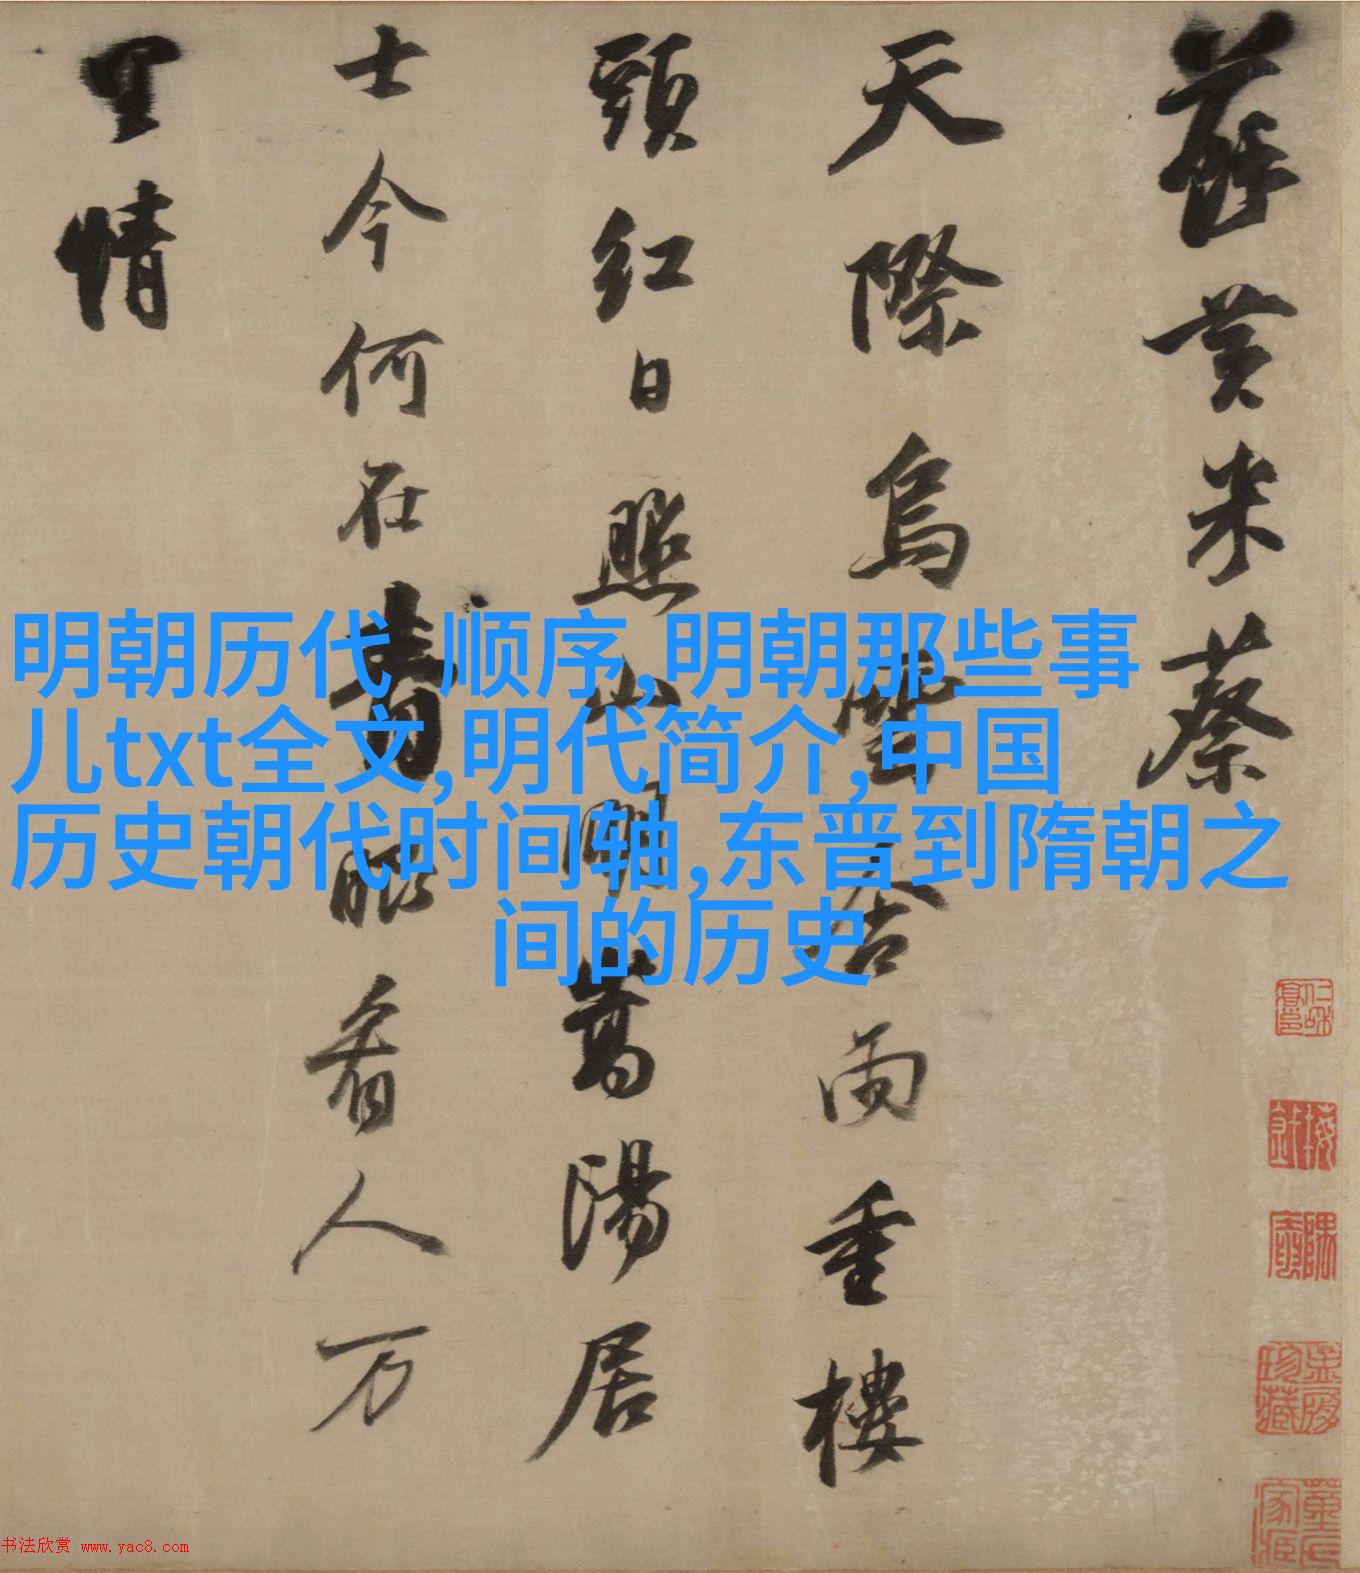 蘇黄米蔡
天際烏雲含雨重樓
頭紅日照山明嵩陽居
士今何在青眼看人万
里情
明朝历代 顺序,明朝那些事
儿txt全文,明代简介,中国
历史朝代时间轴,东普到隋朝之
间的历史
书法欣赏 www.yac8.com